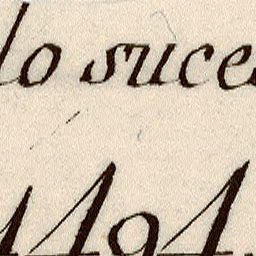 lo suce
1494.